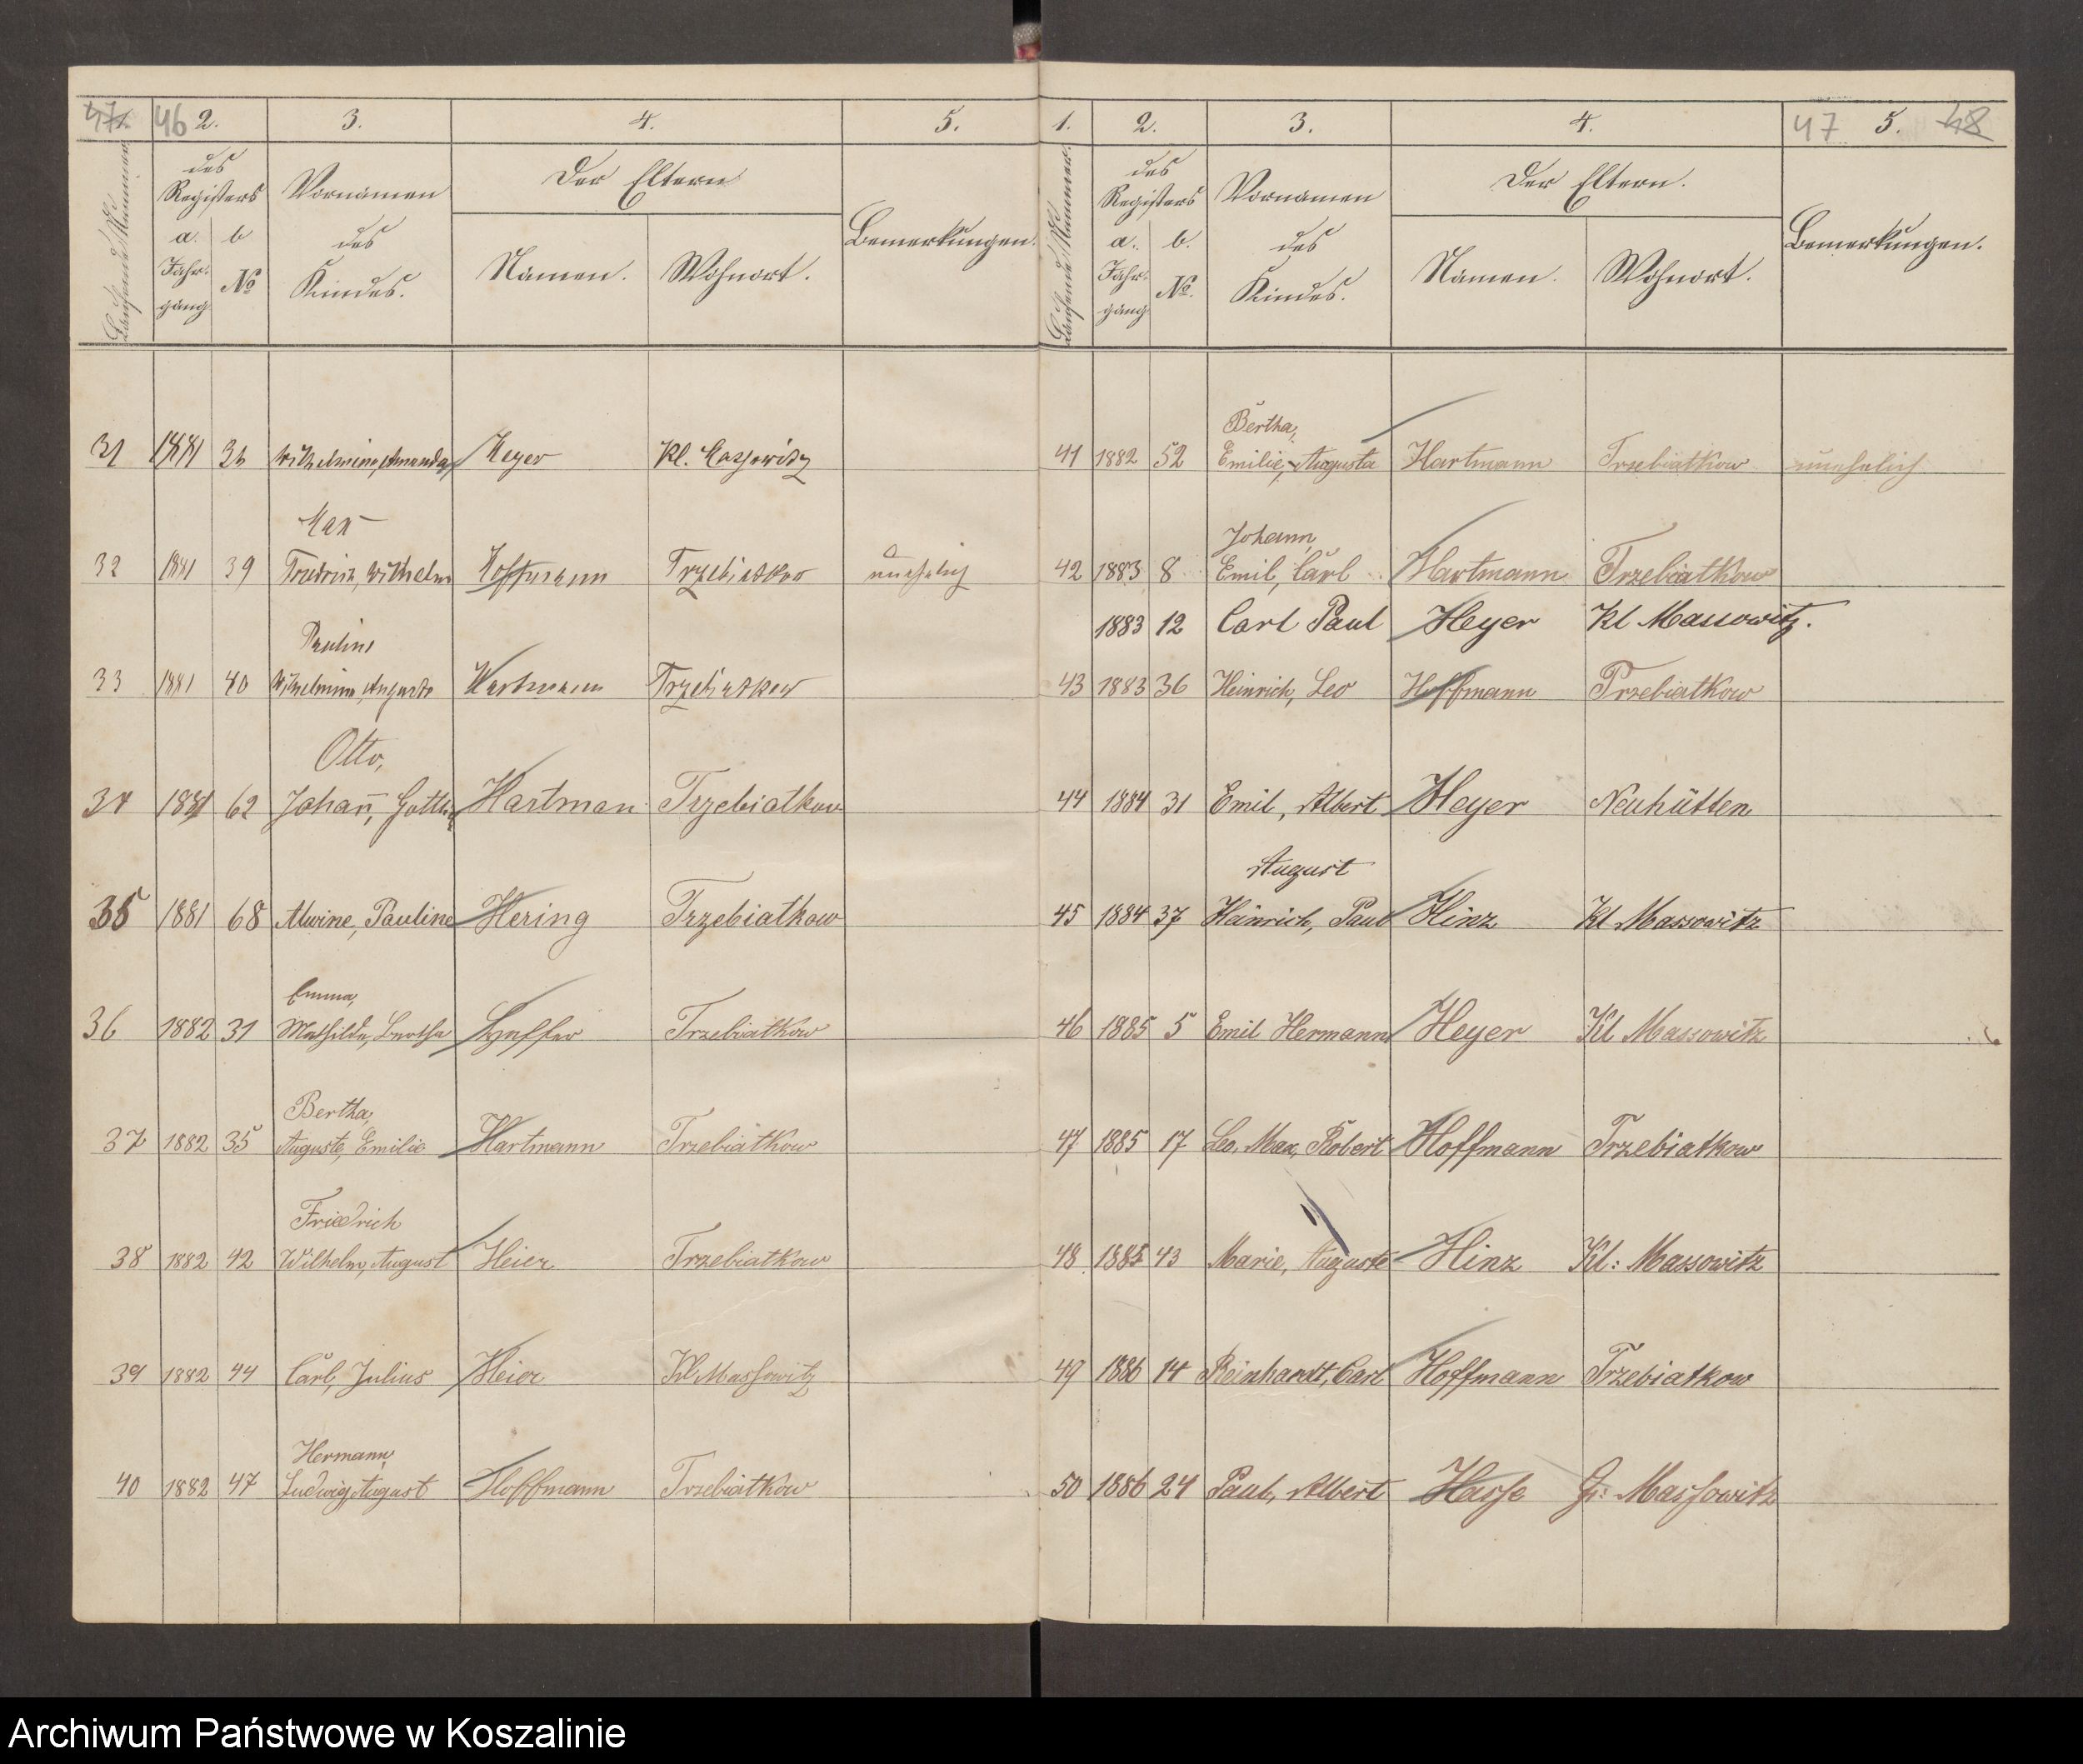 47 1. 46 2. 3. 4. 5.
Laufende Nummer
des Registers
a. Jahrgang
b №
Vornamen des Kindes.
Der Eltern
Namen. Wohnort.
Bemerkungen.
31 1881 Wilhelmine, Amanda, Heyer Kl.
Max
32 1881 39 Friedrich, Wilhelm Hoffmann Trzebiatkow unehelich
Pauline
33 1881 40 Wilhelmine, Auguste Hartmann Trzebiatkow
Otto,
34 1881 62 Johan̄, Gottlieb Hartman Trzebiatkow
35 1881 68 Alwine, Pauline Hering Trzebiatkow
Emma,
36 1882 31 Mathilde, Bertha Trzebiatkow
Bertha,
37 1882 35 Auguste, Emilie Hartmann Trzebiatkow
Friedrich
38 1882 42 Wilhelm, August Heier Trzebiatkow
39 1882 44 Carl, Julius Heier Kl. Massowitz
Hermann,
40 1882 47 Ludwig, August Hoffmann Trzebiatkow
1. 2. 3. 4. 47 5. 48
Laufende Nummer.
des Registers
a. Jahrgang
b. №.
Vornamen des Kindes.
Der Eltern.
Namen. Wohnort.
Bemerkungen.
Bertha,
41 1882 52 Emilie, Augusta Hartmann Trzebiatkow unehelich
Johann,
42 1883 8 Emil, Carl Hartmann Trzebiatkow
1883 12 Carl Paul Heyer Kl Massowitz.
43 1883 36 Heinrich, Leo Hoffmann Trzebiatkow
44 1884 31 Emil, Albert Heyer Neuhütten
August
45 1884 37 Heinrich, Paul Hinz Kl Massowitz
46 1885 5 Emil Hermann Heyer Kl Massowitz
47 1885 17 Leo, Max, Robert Hoffmann Trzebiatkow
48 1885 43 Marie, Auguste Hinz Kl: Massowitz
49 1886 14 Reinhardt, Carl Hoffmann Trzebiatkow
50 1886 24 Paul, Albert Hasse Gr: Massowitz
Archiwum Państwowe w Koszalinie